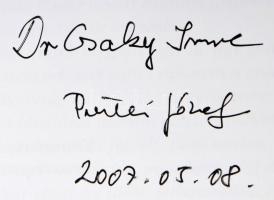 Dr Csaky Imre
Péntei József
2007.05.08.